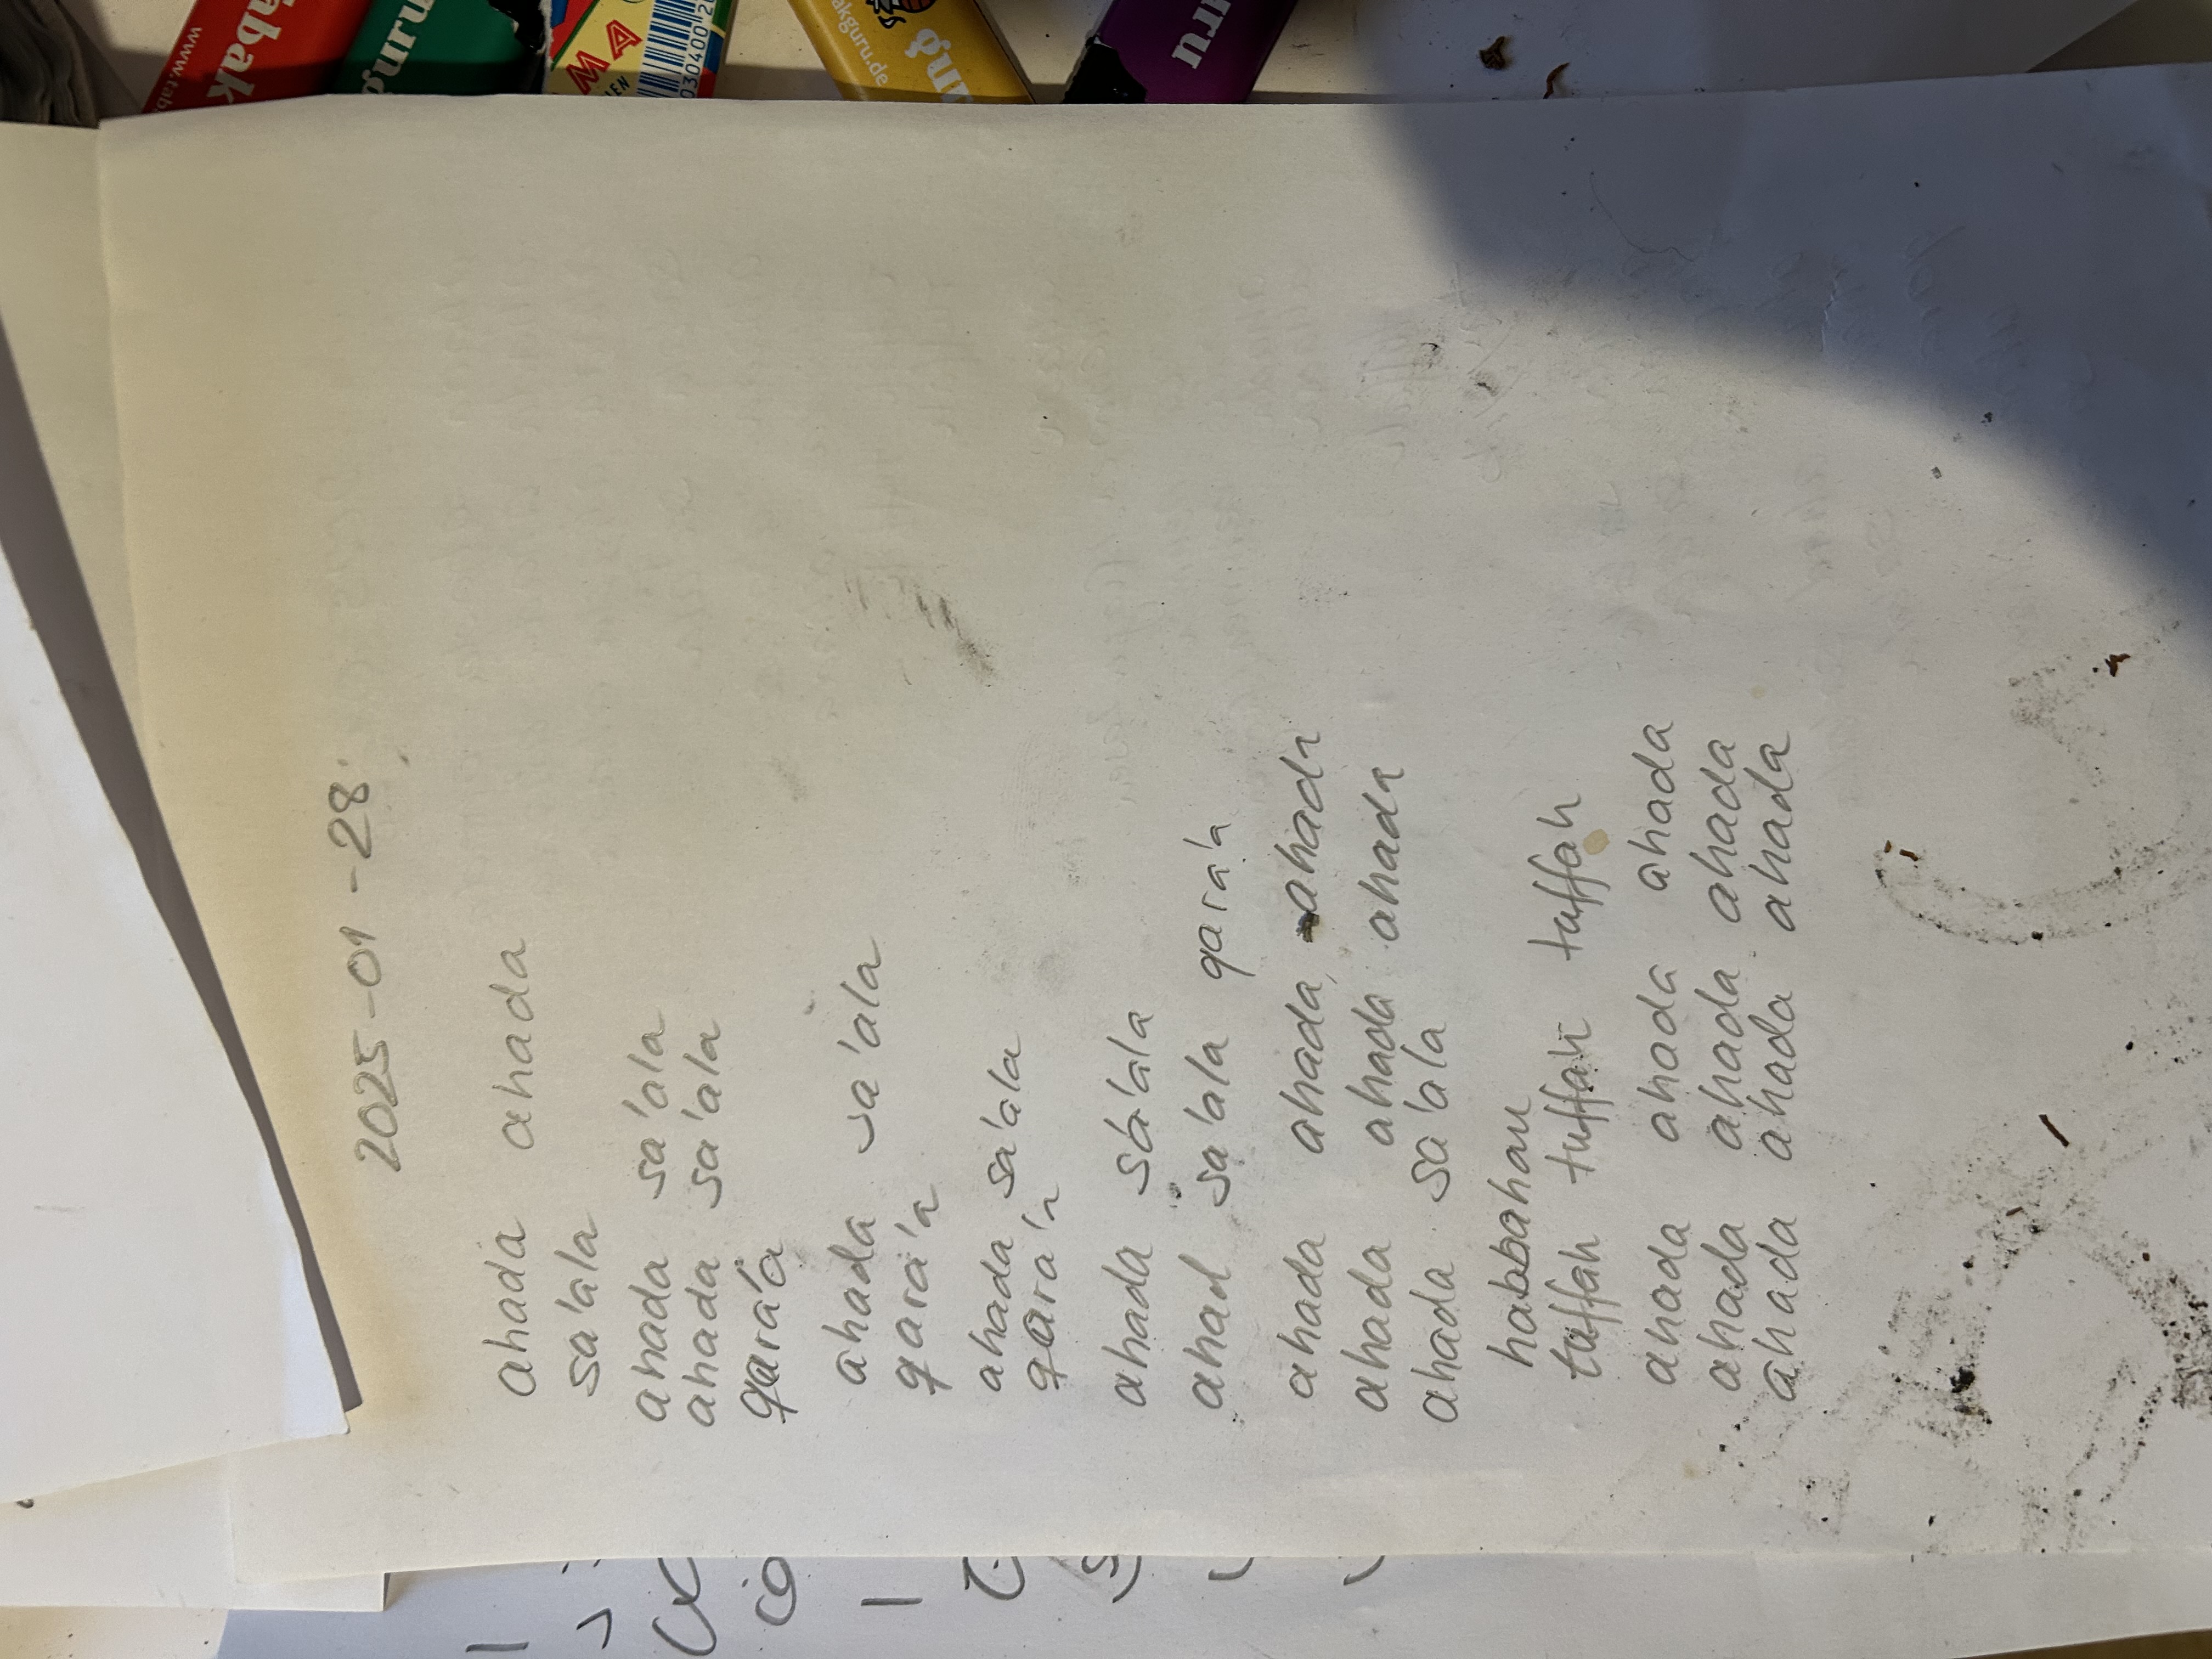 2025-01-28
ahada ahada
sa'ala
ahada sa'ala
ahada sa'ala
qara'a
ahada sa'ala
qara'a
ahada sa'ala
qara'a
ahada sa'ala
ahad sa'ala qara'a
ahada ahada, ahada
ahada ahada ahada
ahada sa'ala
tuffah tuffah tuffah
ahada ahada ahada
ahada ahada ahada
ahada ahada ahada
www.tab
MA
030400
akguru.de
gur
uru